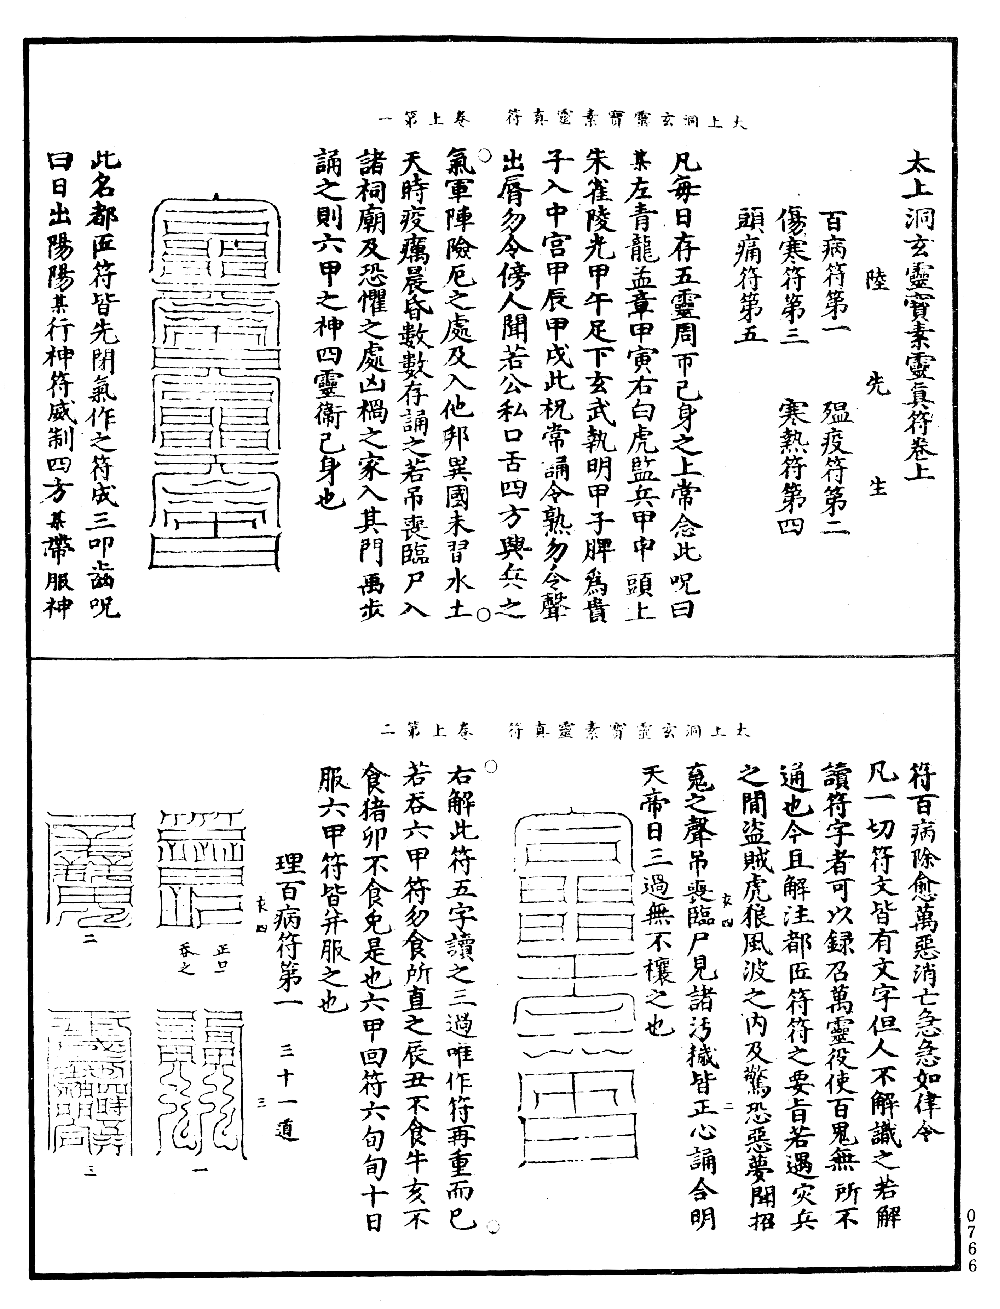 太上洞玄靈寶素靈真符　卷上第一
太上洞玄靈寶素靈眞符卷上
陸先生
百病符第一　瘟疫符第二
傷寒符第三　寒熱符第四
頭痛符第五
凡每日存五靈周帀已身之上常念此呪曰
某左青龍孟章甲寅右白虎監兵甲申頭上
朱雀陵光甲午足下玄武執明甲子脾爲貴
子入中宮甲辰甲戌此祝常誦令熟勿令聲
出脣勿令傍人聞若公私口舌四方興兵之
氣軍陣險厄之處及入他邦異國未習水土
天時疫癘晨昏數數存誦之若吊喪臨尸入
諸祠廟及恐懼之處凶禍之家入其門禹步
誦之則六甲之神四靈衞已身也
此名都匠符皆先閉氣作之符成三叩齒呪
曰日出陽陽某行神符威制四方某帶服神
太上洞玄靈寶素靈真符　卷上第二
符百病除愈萬惡消亡急急如律令
凡一切符文皆有文字但人不解識之若解
讀符字者可以録召萬靈役使百鬼無所不
通也今且解注都匠符符之要旨若遇灾兵
之間盗賊虎狼風波之内及驚恐惡夢聞招
䰟之聲吊喪臨尸見諸汚穢皆正心誦合明
天帝日三過無不禳之也
衣四
二
右解此符五字讀之三過唯作符再重而已
若呑六甲符勿食所直之辰丑不食牛亥不
食猪卯不食兔是也六甲回符六旬旬十日
服六甲符皆并服之也
理百病符第一　三十一道
衣四
三
正旦
呑之
一
二
三
0766